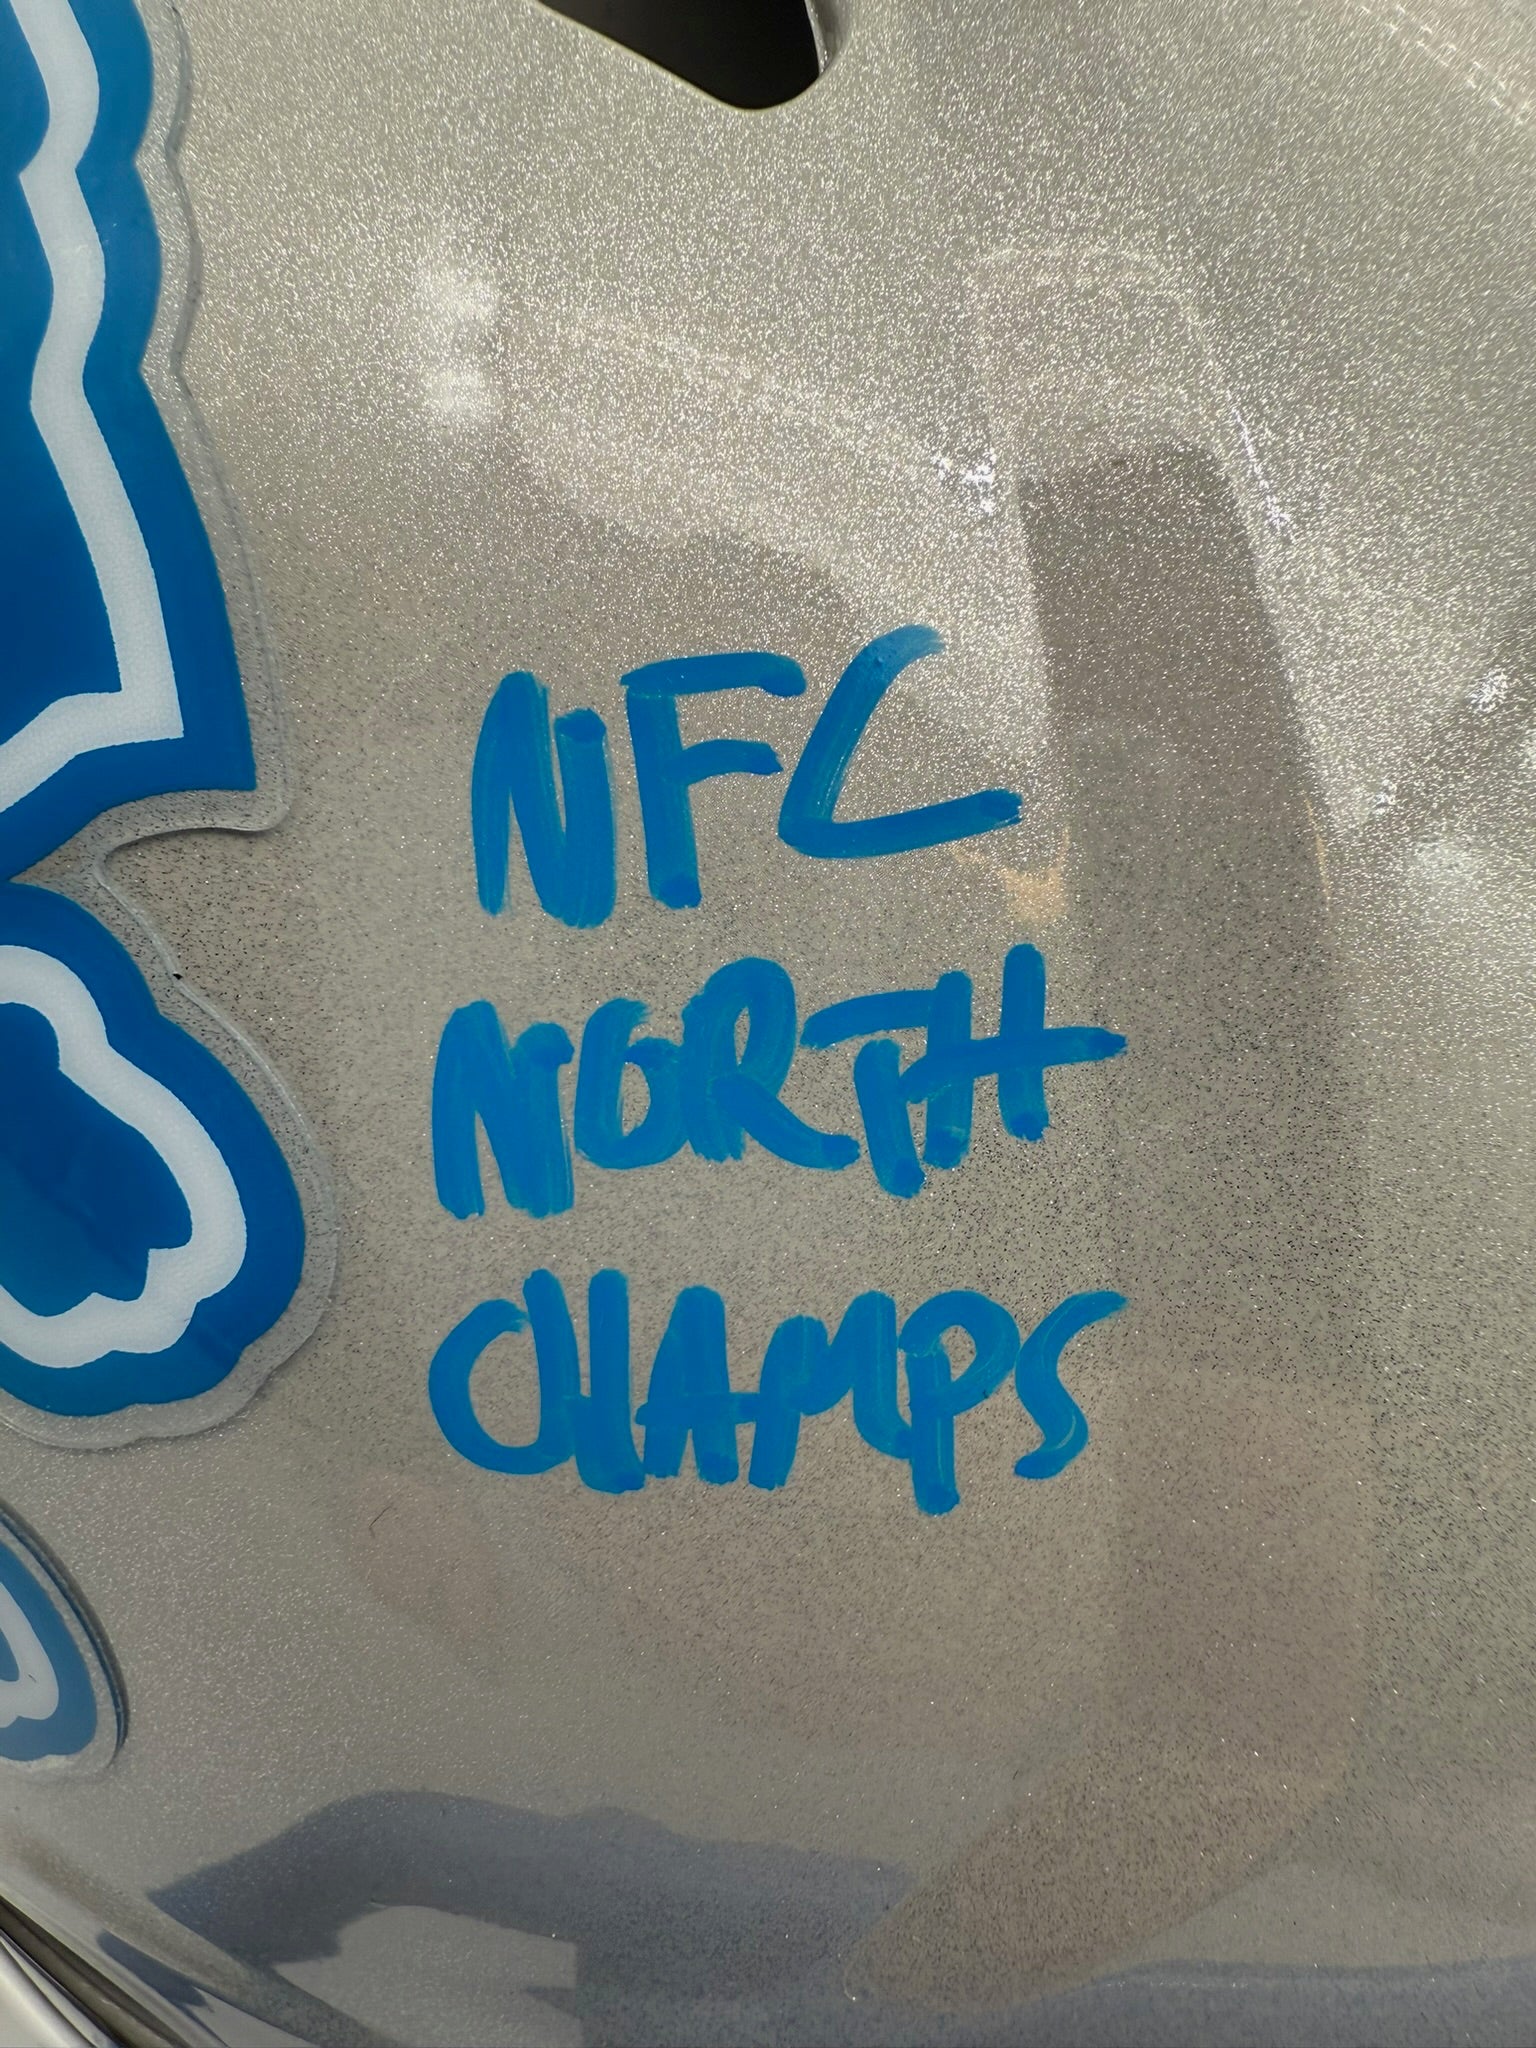 NFC
NORTH
CHAMPS